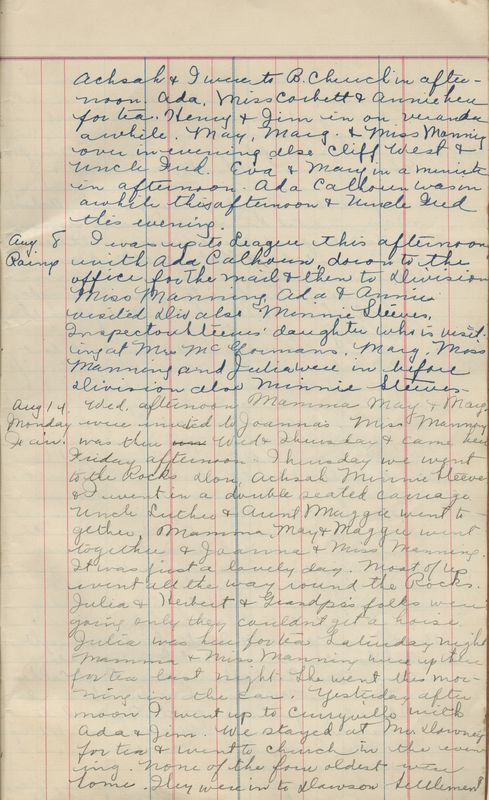 Achsah & I were to B. Church in after-
noon. Ada, Miss Corbett & Annie here
for tea. Henry & Jim in on veranda
awhile. May, Marg. & Miss Manning
over in evening also Cliff West &
Uncle Fred. Eva & Mary in a minute
in afternoon. Ada Calhoun was in
awhile this afternoon & Uncle Fred
this evening.
Aug 8 I was up to League this afternoon
Rainy with Ada Calhoun, down to the
office for the mail & then to Division
Miss Manning, Ada & Annie
visited Div also Minnie Steeves,
Inspector Steeves' daughter who is visit-
ing at Mrs McGormans. Marg, Miss
Manning and Julia were in before
Division also Minnie Steeves-
Aug 14 Wed. afternoon Mamma May & Marg.
Monday were invited to Joanna's Miss Manning
Fair. was there Wed & Thursday & came here
Friday afternoon. Thursday we went
to the Rocks. Don, Achsah Minnie Steeves
& I went in a double seated carriage
Uncle Luther & Aunt Maggie went to-
gether, Mamma, May & Maggie went
together & Joanna & Miss Manning.
It was just a lovely day. Most of us
went all the way round the Rocks.
Julia & Herbert & Grandpa's folks were
going only they couldn't get a horse
Julia was here for tea Saturday night
Mamma & Miss Manning were up there
for tea last night. She went this mor-
ning in the car. Yesterday after
noon I went up to Curryville with
Ada & Jim. We stayed at Mr Downey
for tea & went to church in the even
ing. None of the four oldest were
home. They were in to Dawson Settlement